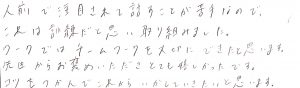 人前で注目されて話すことが苦手なので、
これは訓練だと思い取り組みました。
ワークではチームワークを大切にできたと思います。
先生からお褒めいただきとても嬉しかったです。
コツをつかんでこれからいかしていきたいと思います。